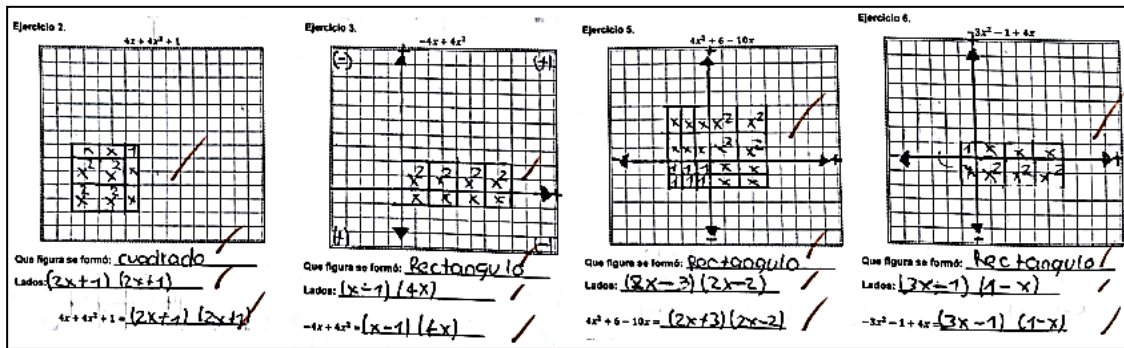 Ejercicio 2.
4x + 4x² + 1
x x 1
x² x² x
x² x² x
Que figura se formó: cuadrado
Lados: (2x+1) (2x+1)
4x + 4x² + 1 = (2x+1) (2x+1)
Ejercicio 3.
−4x + 4x²
(-) (+)
x² x² x² x²
x x x x
(+) (-)
Que figura se formó: Rectangulo
Lados: (x-1) (4x)
−4x + 4x² = (x-1) (4x)
Ejercicio 5.
4x² + 6 − 10x
x x x x² x²
x x x x² x²
1 1 1 x x
1 1 1 x x
Que figura se formó: Rectangulo
Lados: (2x-3) (2x-2)
4x² + 6 − 10x = (2x+3) (2x-2)
Ejercicio 6.
−3x² − 1 + 4x
1 x x x
x x² x² x²
Que figura se formó: Rectangulo
Lados: (3x-1) (1-x)
−3x² − 1 + 4x = (3x-1) (1-x)